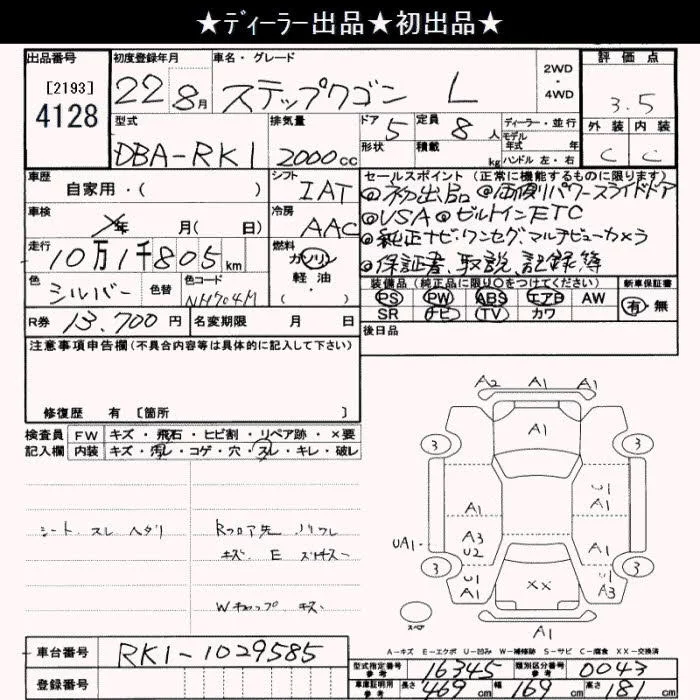 ★ディーラー出品★初出品★
出品番号
[2193]
4128
初度登録年月
22年8月
車名・グレード
ステップワゴン L
2WD
・
4WD
評価点
3.5
外装 内装
C C
型式
DBA-RK1
排気量
2000cc
ドア 5
形状
定員 8人
積載 kg
ディーラー・並行
モデル
年式 年
ハンドル 左・右
車歴
自家用・( )
シフト
IAT
セールスポイント (正常に機能するものに限ります)
◎初出品 ◎両側パワースライドドア
◎USA ◎ビルトインETC
◎純正ナビ・ワンセグ、マルチビューカメラ
◎保証書、取説、記録簿
車検
年 月( 日)
冷房
AAC
走行
10万1千805km
燃料
ガソリン
・
軽油
( )
色
シルバー
色替
色コード
NH704M
装備品 (純正品に限り○をつけてください)
PS PW ABS エアB AW
SR ナビ TV カワ
新車保証書
有・無
R券 13,700円
名変期限 月 日
後日品
注意事項申告欄(不具合内容等は具体的に記入して下さい)
修復歴 有 [箇所 ]
検査員
記入欄
FW キズ・飛石・ヒビ割・リペア跡・×要
内装 キズ・汚レ・コゲ・穴・スレ・キレ・破レ
シート スレ ヘタリ
Rフロア先
キズ E
Wチャップ キズ
A2 A1 A1
A1
3 3
U1
A1
A1
UA1
A3
U2
A1
U1
A1
XX
U1
A3
3 3
スペア
A1
A-キズ E-エクボ U-凹み W-補修跡 S-サビ C-腐食 XX-交換済
車台番号
RK1-1029585
登録番号
型式指定番号
参考
16345
類別区分番号
参考
0043
車庫証明用
参考
長さ 469cm 幅 169cm 高さ 181cm